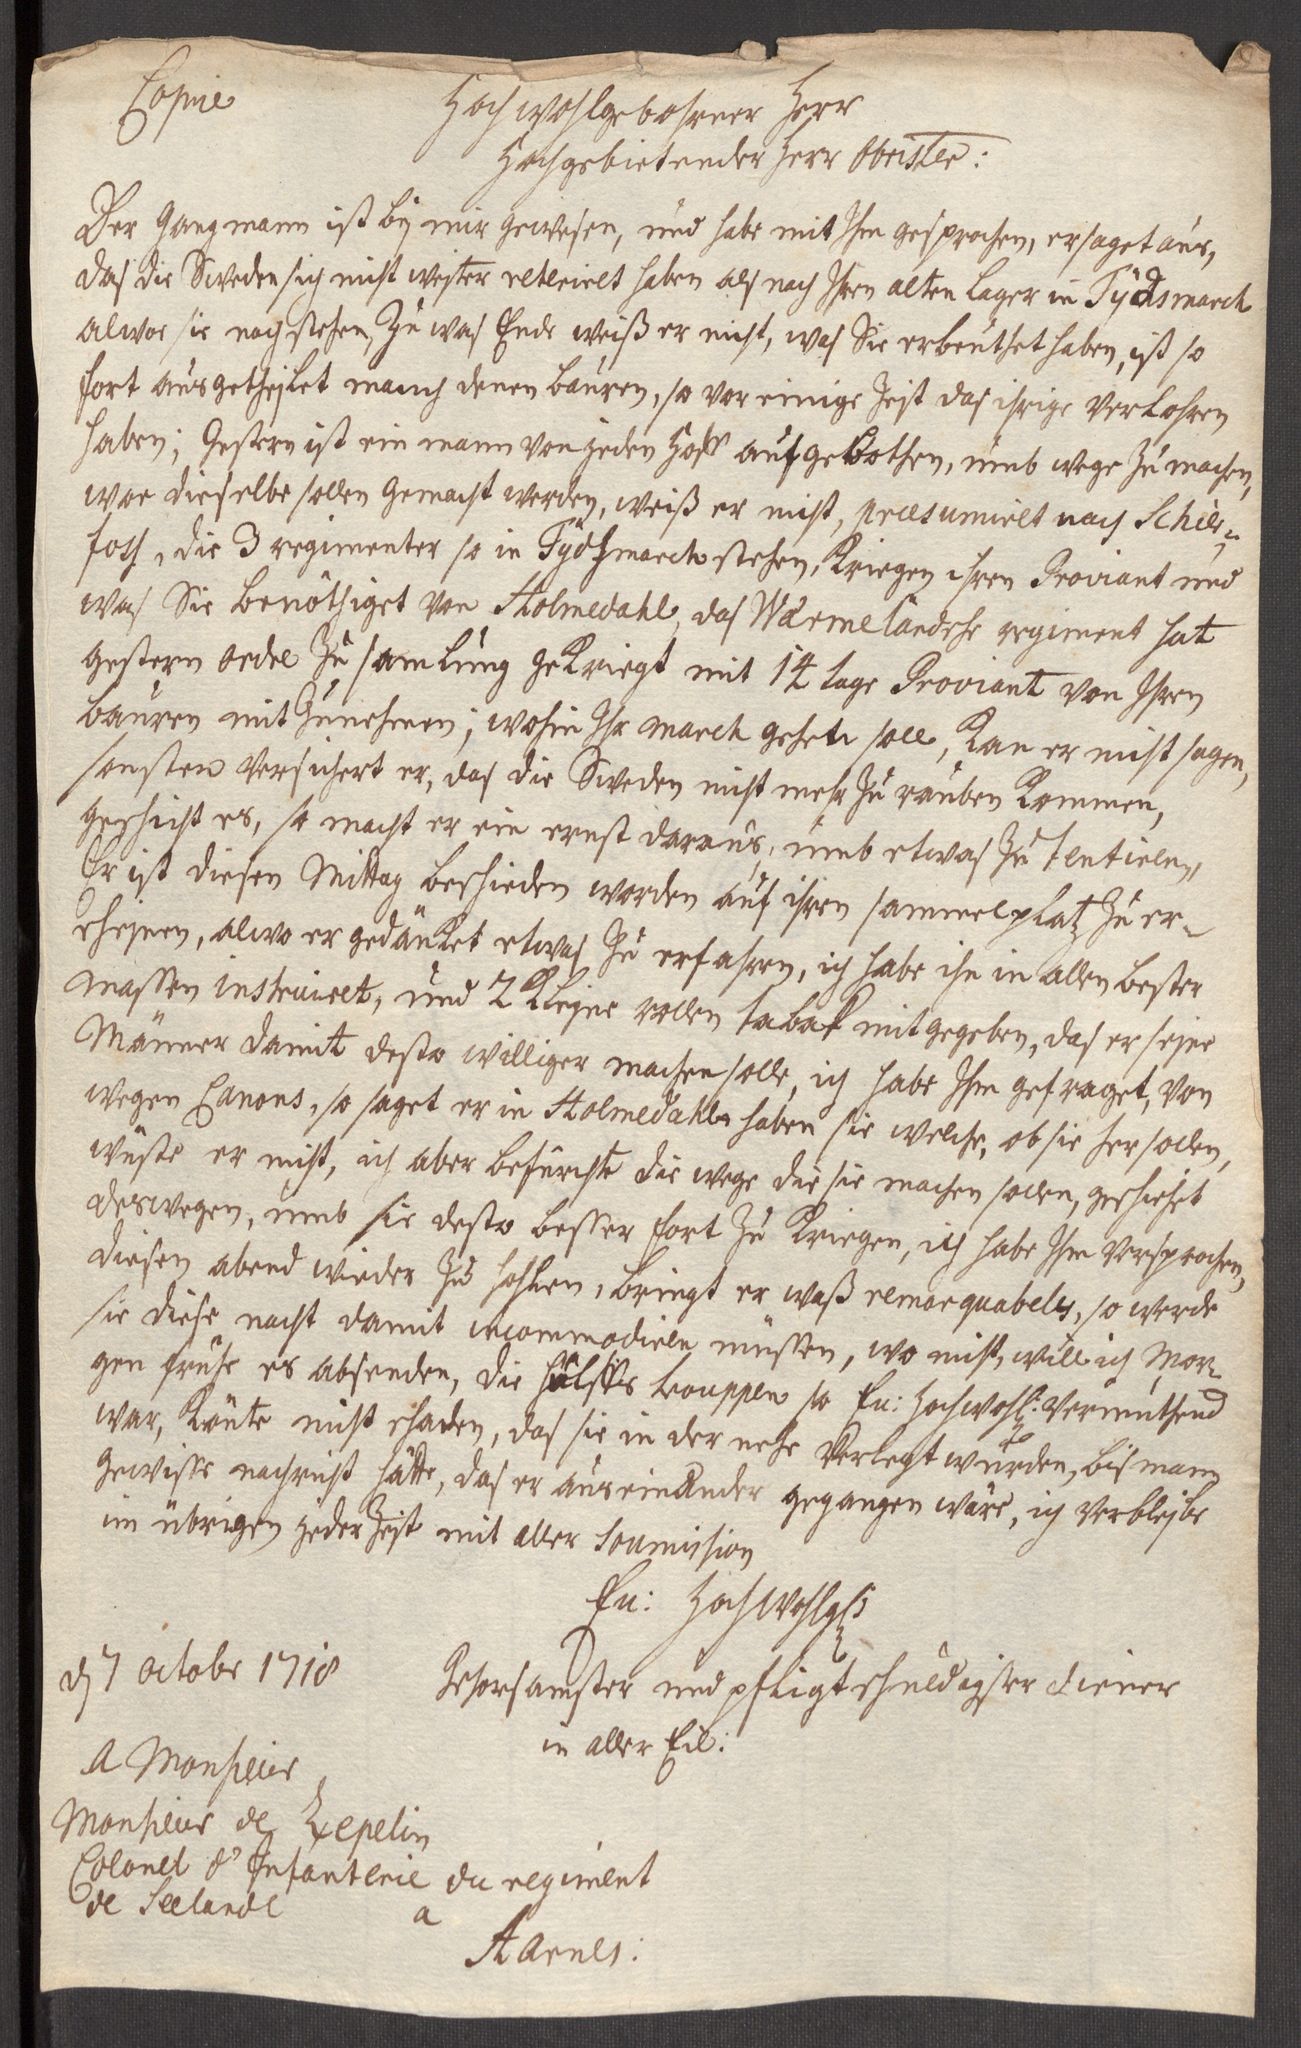 Copie
Hochwohlgebohrner Herr
Hochgebietender Herr Obrister:
Der Gangmann ist bey mir gewesen, und habe mit Ihm gesprochen, er saget aus,
das die Sweden sich nicht weiter retteriret haben als nach Ihren alten Lager in Tydsmarck
alwor sie noch stehen, Zu was Ende weiß er nicht, was Sie erbeuthet haben, ist so
fort ausgetheilet manch denen bauren, so vor einige Zeit das ihrige Verlohren
haben; Gestern ist ein mann von jeden Hoff aufgebothen, umb wege zu machen,
wor dieselbe sollen gemacht werden, weiß er nicht, præsumiret nach Schier-
foss, die 3 regimenter so in Tydsmarck stehen, Kriegen ihren Proviant und
was Sie benöthiget von Holmedahl, das Wærmelandsche regiment hat
gestern ordre Zu samlung gekriegt mit 14 tage Proviant von Ihren
bauren mit Zunehmen; wohin Ihr march gehen soll, Kan er nicht sagen,
sonsten versichert er, das die Sweden nicht mehr Zu rauben Kommen,
geschicht es, so macht er ein ernst daraus, umb etwas Zu tentiren,
Er ist diesen Mittag beschieden worden auf ihren sammelplatz Zu er-
scheinen, alwo er gedäncket etwas Zu erfahren, ich habe ihn in allen bester
massen instruiret, und 2 Kleine rollen taback mitgegeben, das er seine
Männer damit desto williger machen solle, ich habe Ihm gefraget, von
wegen Canons, so saget er in Holmedahl haben sie welche, ob sie her sollen,
wuste er nicht, ich aber befürchte die wege die sie machen sollen, geschiehet
deswegen, umb sie desto besser fort Zu Kriegen, ich habe Ihm versprochen,
diesen abend wieder Zu hohlen, bringt er waß remarquabeles, so werde
sie diese nacht damit incommodiren müssen, wo nicht, will ich Mor-
gen frühe es absenden, die hülffs trouppen so Eu: Hochwohl: vermuthend
war, Könte nicht schaden, das sie in der nehe verlegt würden, bis mann
gewisse nachricht hätte, das er auseinander gegangen wäre, ich verbleibe
im übrigen jeder Zeit mit aller Soumission
Eu: Hochwohlgb
d 7 octobr 1718
Gehorsamster und pfligtschuldigster diener
in aller Eil:
A Monsieur
Monsieur de Zepelin
Colonel d'Infanterie du regiment
de Seelande
a
Aarnes: